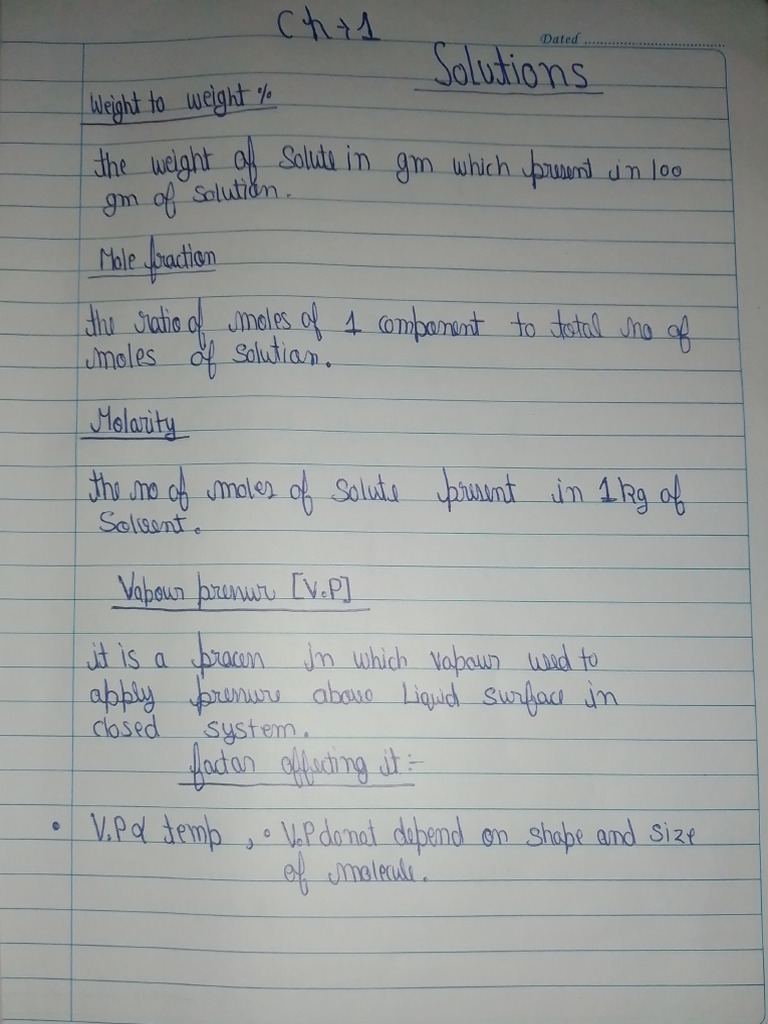 Ch → 1
Dated
Solutions
Weight to weight %
the weight of solute in gm which present in 100
gm of solution.
Mole fraction
the ratio of moles of 1 component to total no of
moles of solution.
Molarity
the no of moles of solute present in 1 kg of
Solvent.
Vapour pressure [V.P]
it is a process in which vapour used to
apply pressure above liquid surface in
closed system.
factor affecting it :-
• V.P α temp , • V.P do not depend on shape and size
of molecule.